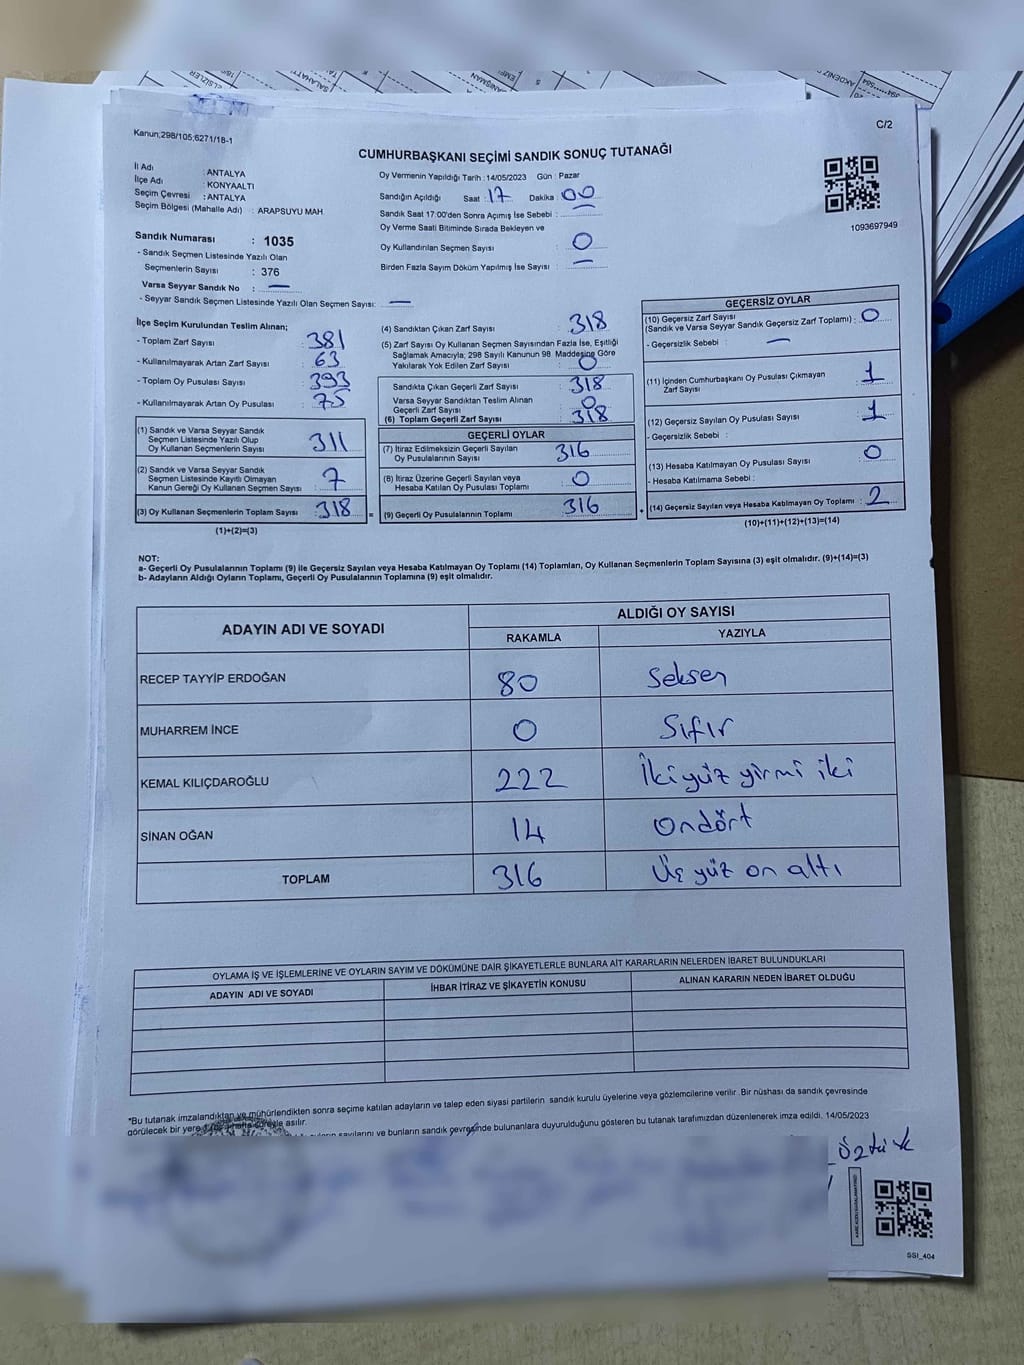 C/2
Kanun;298/105;6271/18-1
CUMHURBAŞKANI SEÇİMİ SANDIK SONUÇ TUTANAĞI
İl Adı : ANTALYA
İlçe Adı : KONYAALTI
Seçim Çevresi : ANTALYA
Seçim Bölgesi (Mahalle Adı) : ARAPSUYU MAH
Sandık Numarası : 1035
- Sandık Seçmen Listesinde Yazılı Olan
Seçmenlerin Sayısı : 376
Varsa Seyyar Sandık No : —
- Seyyar Sandık Seçmen Listesinde Yazılı Olan Seçmen Sayısı: —
Oy Vermenin Yapıldığı Tarih : 14/05/2023 Gün : Pazar
Sandığın Açıldığı Saat : 17 Dakika : 00
Sandık Saat 17:00'den Sonra Açımış İse Sebebi :
Oy Verme Saati Bitiminde Sırada Bekleyen ve
Oy Kullandırılan Seçmen Sayısı : 0
Birden Fazla Sayım Döküm Yapılmış İse Sayısı : —
1093697949
İlçe Seçim Kurulundan Teslim Alınan;
- Toplam Zarf Sayısı : 381
- Kullanılmayarak Artan Zarf Sayısı : 63
- Toplam Oy Pusulası Sayısı : 393
- Kullanılmayarak Artan Oy Pusulası : 75
(1) Sandık ve Varsa Seyyar Sandık
Seçmen Listesinde Yazılı Olup
Oy Kullanan Seçmenlerin Sayısı : 311
(2) Sandık ve Varsa Seyyar Sandık
Seçmen Listesinde Kayıtlı Olmayan
Kanun Gereği Oy Kullanan Seçmen Sayısı : 7
(3) Oy Kullanan Seçmenlerin Toplam Sayısı : 318
(1)+(2)=(3)
(4) Sandıktan Çıkan Zarf Sayısı : 318
(5) Zarf Sayısı Oy Kullanan Seçmen Sayısından Fazla İse, Eşitliği
Sağlamak Amacıyla; 298 Sayılı Kanunun 98. Maddesine Göre
Yakılarak Yok Edilen Zarf Sayısı : 0
Sandıkta Çıkan Geçerli Zarf Sayısı : 318
Varsa Seyyar Sandıktan Teslim Alınan
Geçerli Zarf Sayısı : 0
(6) Toplam Geçerli Zarf Sayısı : 318
=
GEÇERLİ OYLAR
(7) İtiraz Edilmeksizin Geçerli Sayılan
Oy Pusulalarının Sayısı : 316
(8) İtiraz Üzerine Geçerli Sayılan veya
Hesaba Katılan Oy Pusulası Toplamı : 0
(9) Geçerli Oy Pusulalarının Toplamı : 316
+
GEÇERSİZ OYLAR
(10) Geçersiz Zarf Sayısı
(Sandık ve Varsa Seyyar Sandık Geçersiz Zarf Toplamı) : 0
- Geçersizlik Sebebi : —
(11) İçinden Cumhurbaşkanı Oy Pusulası Çıkmayan
Zarf Sayısı : 1
(12) Geçersiz Sayılan Oy Pusulası Sayısı : 1
- Geçersizlik Sebebi :
(13) Hesaba Katılmayan Oy Pusulası Sayısı : 0
- Hesaba Katılmama Sebebi :
(14) Geçersiz Sayılan veya Hesaba Katılmayan Oy Toplamı : 2
(10)+(11)+(12)+(13)=(14)
NOT:
a- Geçerli Oy Pusulalarının Toplamı (9) ile Geçersiz Sayılan veya Hesaba Katılmayan Oy Toplamı (14) Toplamları, Oy Kullanan Seçmenlerin Toplam Sayısına (3) eşit olmalıdır. (9)+(14)=(3)
b- Adayların Aldığı Oyların Toplamı, Geçerli Oy Pusulalarının Toplamına (9) eşit olmalıdır.
ADAYIN ADI VE SOYADI
ALDIĞI OY SAYISI
RAKAMLA YAZIYLA
RECEP TAYYİP ERDOĞAN 80 Seksen
MUHARREM İNCE 0 Sıfır
KEMAL KILIÇDAROĞLU 222 İkiyüz yirmi iki
SİNAN OĞAN 14 Ondört
TOPLAM 316 Üç yüz on altı
OYLAMA İŞ VE İŞLEMLERİNE VE OYLARIN SAYIM VE DÖKÜMÜNE DAİR ŞİKAYETLERLE BUNLARA AİT KARARLARIN NELERDEN İBARET BULUNDUKLARI
ADAYIN ADI VE SOYADI İHBAR İTİRAZ VE ŞİKAYETİN KONUSU ALINAN KARARIN NEDEN İBARET OLDUĞU
*Bu tutanak imzalandıktan ve mühürlendikten sonra seçime katılan adayların ve talep eden siyasi partilerin sandık kurulu üyelerine veya gözlemcilerine verilir. Bir nüshası da sandık çevresinde
görülecek bir yere asılır.
sayılarını ve bunların sandık çevresinde bulunanlara duyurulduğunu gösteren bu tutanak tarafımızdan düzenlenerek imza edildi. 14/05/2023
Öztürk
SSI_404